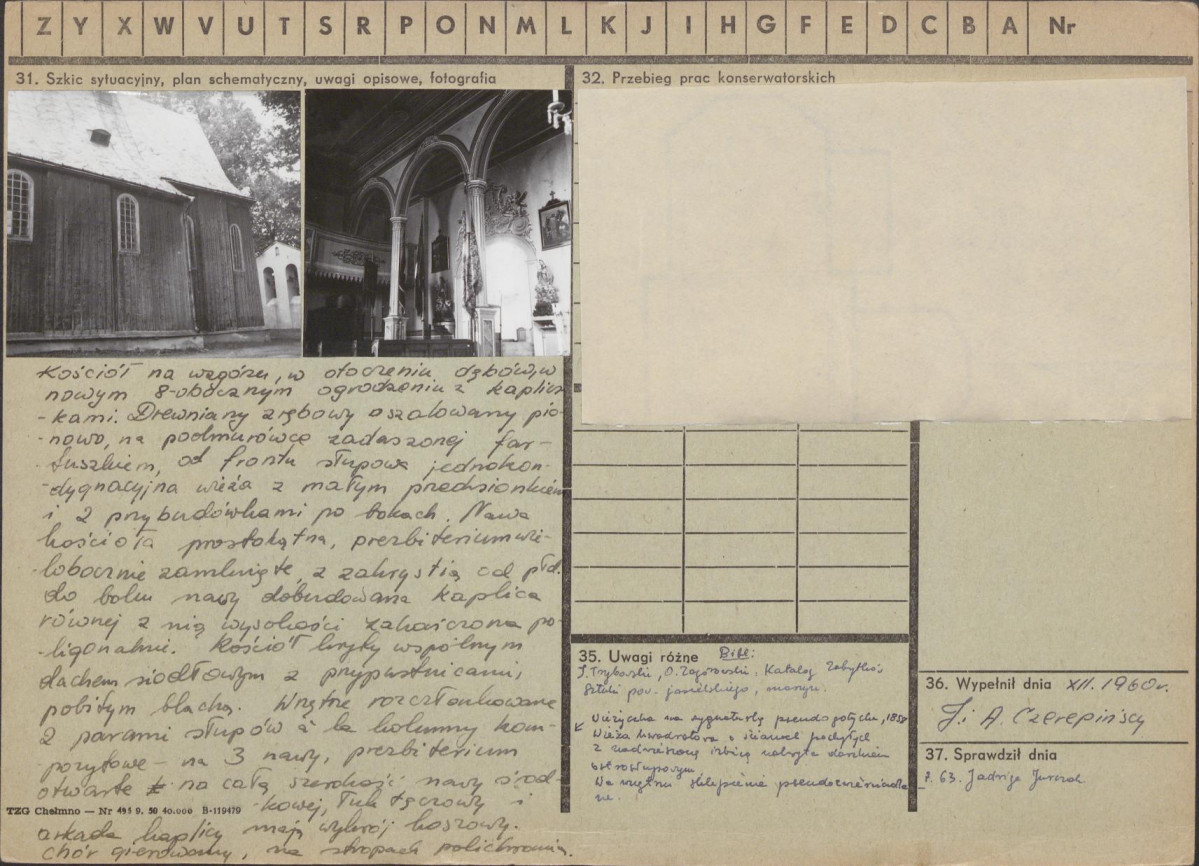 Z Y X W V U T S R P O N M L K J I H G F E D C B A Nr
31. Szkic sytuacyjny, plan schematyczny, uwagi opisowe, fotografia
Kościół na wzgórzu, w otoczeniu dębów, w
nowym 8-obocznym ogrodzeniu z kaplicz-
-kami. Drewniany zrębowy oszalowany pio-
-nowo, na podmurówce zadaszonej far-
-tuszkiem, od frontu słupowa jednokon-
-dygnacyjna wieża z małym przedsionkiem
i 2 przybudówkami po bokach. Nawa
kościoła prostokątna, prezbiterium wie-
lobocznie zamknięte, z zakrystią od płd.
do boku nawy dobudowana kaplica
równej z nią wysokości zakończona po-
-ligonalnie. Kościół kryty wspólnym
dachem siodłowym z przypustnicami,
pobitym blachą. Wnętrze rozczłonkowane
2 parami słupów à la kolumny kom-
pozytowe - na 3 nawy, prezbiterium
otwarte na całą szerokość nawy środ-
-kowej, łuk tęczowy i
TZG Chełmno — Nr 495 9. 50 40.000 B-119479
arkada kaplicy mają wykrój koszowy.
chór gierowany, na stropach polichromia.
32. Przebieg prac konserwatorskich
35. Uwagi różne Bibl:
O. Zagórowski, Katalog Zabytków
Sztuki pow. jasielskiego, maszyn.
Wieżyczka na sygnaturkę pseudogotycka, 1858
Wieża kwadratowa o ścianach pochyłych
z nadwieszoną izbicą nakryta daszkiem
ostrosłupowym.
We wnętrzu sklepienie
36. Wypełnił dnia XII. 1960r.
J. i A. Czerepińscy
37. Sprawdził dnia
63. Jadwiga